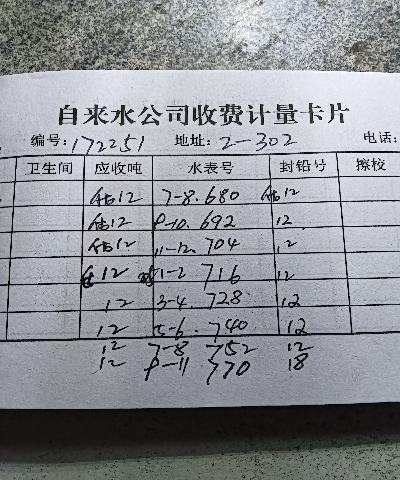 自来水公司收费计量卡片
编号:172251 地址:2-302 电话:
卫生间 应收吨 水表号 封铅号 擦校
估12 7-8. 680 估12
估12 9-10. 692 12
估12 11-12. 704 12
12 1-2 716 12
12 3-4. 728 12
12 5-6. 740 12
12 7-8 752 12
12 9-11 770 18